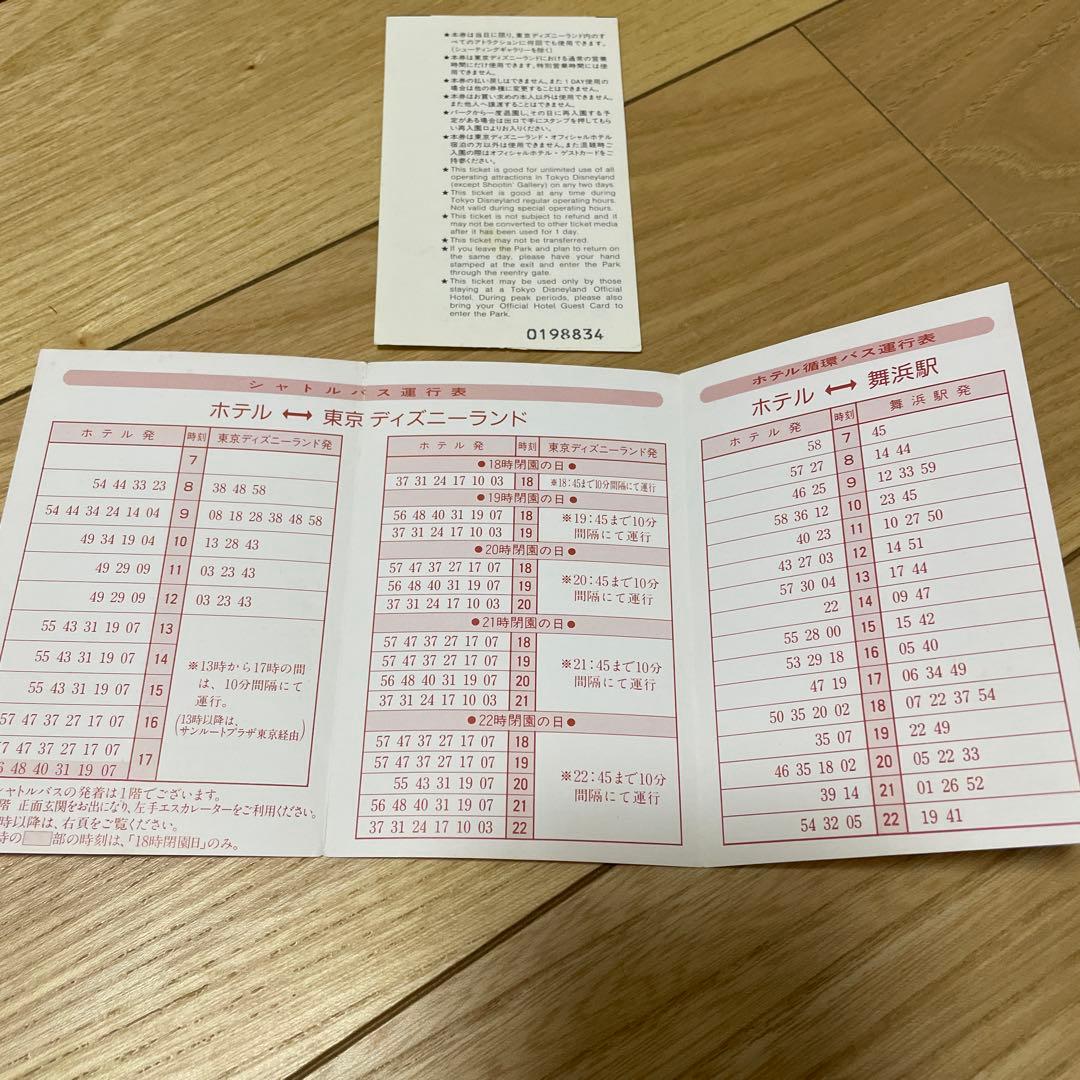 ★本券は当日に限り、東京ディズニーランド内のす
べてのアトラクションに何回でも使用できます。
(シューティングギャラリーを除く)
★本券は東京ディズニーランドにおける通常の営業
時間にだけ使用できます。特別営業時間には使
用できません。
★本券の払い戻しはできません。また1DAY使用の
場合は他の券種に変更することはできません。
★本券はお買い求めの本人以外は使用できません。
また他人へ譲渡することはできません。
★パークから一度退園し、その日に再入園する予
定がある場合は出口で手にスタンプを押してもら
い再入園口よりお入りください。
★本券は東京ディズニーランド・オフィシャルホテル
宿泊の方以外は使用できません。また混雑時ご
入園の際はオフィシャルホテル・ゲストカードをご
持参ください。
★This ticket is good for unlimited use of all
operating attractions in Tokyo Disneyland
(except Shootin' Gallery) on any two days.
★This ticket is good at any time during
Tokyo Disneyland regular operating hours.
Not valid during special operating hours.
★This ticket is not subject to refund and it
may not be converted to other ticket media
after it has been used for 1 day.
★This ticket may not be transferred.
★If you leave the Park and plan to return on
the same day, please have your hand
stamped at the exit and enter the Park
through the reentry gate.
★This ticket may be used only by those
staying at a Tokyo Disneyland Official
Hotel. During peak periods, please also
bring your Official Hotel Guest Card to
enter the Park.
0198834
シャトルバス運行表
ホテル ↔ 東京ディズニーランド
ホテル発 時刻 東京ディズニーランド発
7
54 44 33 23 8 38 48 58
54 44 34 24 14 04 9 08 18 28 38 48 58
49 34 19 04 10 13 28 43
49 29 09 11 03 23 43
49 29 09 12 03 23 43
55 43 31 19 07 13
55 43 31 19 07 14
55 43 31 19 07 15
57 47 37 27 17 07 16
47 37 27 17 07 17
48 40 31 19 07
※13時から17時の間
は、10分間隔にて
運行。
(13時以降は、
サンルートプラザ東京経由)
シャトルバスの発着は1階でございます。
階 正面玄関をお出になり、左手エスカレーターをご利用ください。
時以降は、右頁をご覧ください。
部の時刻は、「18時閉園日」のみ。
ホテル発 時刻 東京ディズニーランド発
●18時閉園の日●
37 31 24 17 10 03 18 ※18:45まで10分間隔にて運行
●19時閉園の日●
56 48 40 31 19 07 18
37 31 24 17 10 03 19
※19:45まで10分
間隔にて運行
●20時閉園の日●
57 47 37 27 17 07 18
56 48 40 31 19 07 19
37 31 24 17 10 03 20
※20:45まで10分
間隔にて運行
●21時閉園の日●
57 47 37 27 17 07 18
57 47 37 27 17 07 19
56 48 40 31 19 07 20
37 31 24 17 10 03 21
※21:45まで10分
間隔にて運行
●22時閉園の日●
57 47 37 27 17 07 18
57 47 37 27 17 07 19
55 43 31 19 07 20
56 48 40 31 19 07 21
37 31 24 17 10 03 22
※22:45まで10分
間隔にて運行
ホテル循環バス運行表
ホテル ↔ 舞浜駅
ホテル発 時刻 舞浜駅発
58 7 45
57 27 8 14 44
46 25 9 12 33 59
58 36 12 10 23 45
40 23 11 10 27 50
43 27 03 12 14 51
57 30 04 13 17 44
22 14 09 47
55 28 00 15 15 42
53 29 18 16 05 40
47 19 17 06 34 49
50 35 20 02 18 07 22 37 54
35 07 19 22 49
46 35 18 02 20 05 22 33
39 14 21 01 26 52
54 32 05 22 19 41